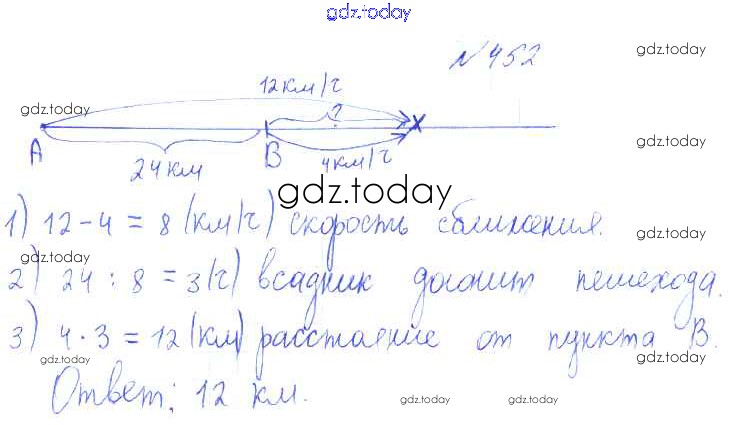 gdz.today
№452
gdz.today
12км/г
gdz.today
?
A B
24км 4км/г
gdz.today
gdz.today
1) 12-4 = 8 (км/г) скорость сближения.
gdz.today
2) 24 : 8 = 3(г) всадник догонит пешехода.
3) 4·3 = 12 (км) расстояние от пункта В.
gdz.today
gdz.today gdz.today
Ответ: 12 км.
gdz.today gdz.today